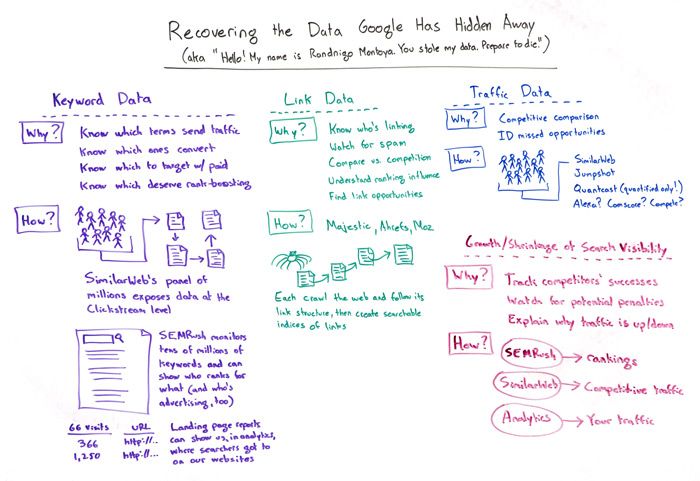 Recovering the Data Google Has Hidden Away
(aka "Hello! My name is Randnigo Montoya. You stole my data. Prepare to die.")
Keyword Data
Why?
Know which terms send traffic
Know which ones convert
Know which to target w/ paid
Know which deserve rank-boosting
How?
SimilarWeb's panel of
millions exposes data at the
Clickstream level
SEMRush monitors
tens of millions of
keywords and can
show who ranks for
what (and who's
advertising, too)
66 visits URL
366 http://...
1,250 http://...
Landing page reports
can show us, in analytics,
where searchers got to
on our websites
Link Data
Why?
Know who's linking
Watch for spam
Compare vs. competition
Understand ranking influence
Find link opportunities
How?
Majestic, Ahrefs, Moz
Each crawl the web and follow its
link structure, then create searchable
indices of links
Traffic Data
Why?
Competitive comparison
ID missed opportunities
How?
SimilarWeb
Jumpshot
Quantcast (quantified only!)
Alexa? Comscore? Compete?
Growth/Shrinkage of Search Visibility
Why?
Track competitors' successes
Watch for potential penalties
Explain why traffic is up/down
How?
SEMRush → rankings
SimilarWeb → Competitive traffic
Analytics → Your traffic